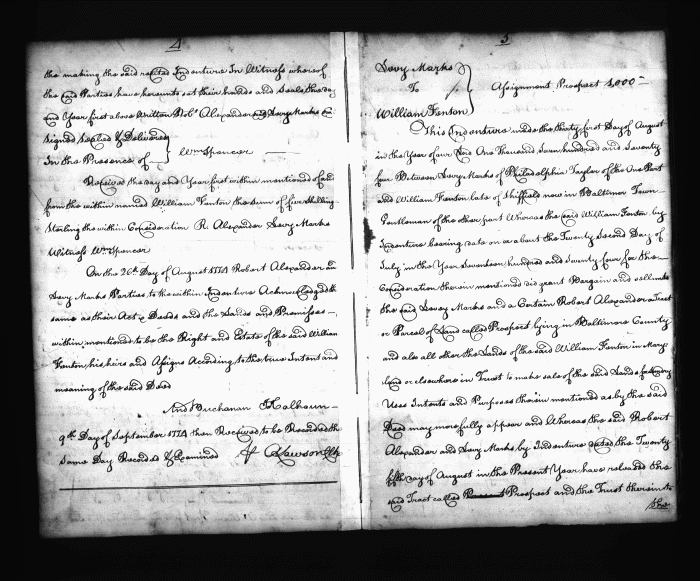 4
the making the said recited Indenture In Witness whereof
the said Parties have hereunto set their hands and Seals the day
and Year first above Written Robt. Alexander and Levy Marks
signed sealed & Delivered
In the Presence of } Wm Spencer
Received the day and Year first within mentioned of and
from the within named William Fenton the sum of five shillings
Sterling the within Consideration R. Alexander Levy Marks
Witness Wm Spencer
On the 26th Day of August 1774 Robert Alexander and
Levy Marks Parties to the within Indenture Acknowledged the
same as their Act & Deeds and the Lands and Premises
within mentioned to be the Right and Estate of the said William
Fenton his heirs and Assigns According to the true Intent and
meaning of the said Deed
And Buchanan Calhoun
9th Day of September 1774 then Received to be Recorded the
same Day Recorded & Examined A Lawson Clk
5
Levy Marks
To } Assignment Prospect 1,000
William Fenton
This Indenture made the thirty first Day of August
in the Year of our Lord One Thousand Seven hundred and Seventy
four Between Levy Marks of Philadelphia Taylor of the One Part
and William Fenton late of Sheffield now in Baltimore Town
Gentleman of the other part Whereas the said William Fenton by
Indenture bearing date on or about the Twenty Second Day of
July in the Year Seventeen hundred and Seventy four for the
Consideration therein mentioned did grant Bargain and sell unto
the said Levy Marks and a Certain Robert Alexander a Tract
or Parcel of Land called Prospect lying in Baltimore County
and also all other the Lands of the said William Fenton in Mary
land or elsewhere in Trust to make sale of the said Lands for
Uses Intents and Purposes therein mentioned as by the said
Deed may more fully appear and Whereas the said Robert
Alexander and Levy Marks by Indenture dated the Twenty
fifth day of August in the Present Year have released the
said Tract called Prospect and the Trust therein to
the